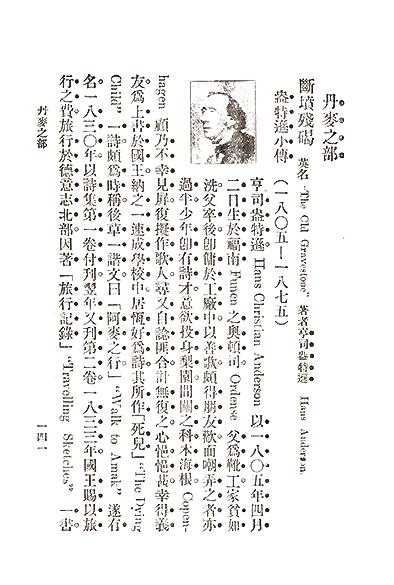 丹麥之部
斷墳殘碣 英名 "The Old Gravestone" 著者亨司盎特遜 Hans Anderson.
盎特遜小傳
(一八〇五—一八七五)
亨司盎特遜 Hans Christian Anderson 以一八〇五年四月
二日生於福南 Funen 之奧頓司 Ordense 父爲靴工家貧如
洗父卒後卽傭於工廠中以善歌頗得朋友歡而嘲弄之者亦
過半少年卽有詩才意欲投身梨園間關之科本海根 Copen-
hagen 顧乃不幸見屏復擬作歌人尋又自諗匪合計無復之心悒悒甚幸得義
友爲上書於國王納之一速成學校中居恆好爲詩其所作「死兒」 "The Dying
Child" 一詩頗爲時稱後草一諧文曰「阿麥之行」 "Walk to Amak" 遂有
名一八三〇年以詩集第一卷付刋翌年又刋第二卷一八三三年國王賜以旅
行之費旅行於德意志北部因著「旅行記錄」 "Travelling Sketches" 一書
丹麥之部
一四一